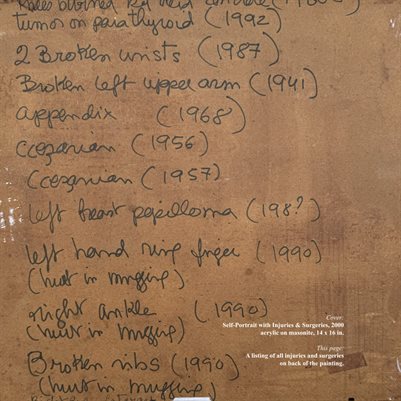 tumor on parathyroid (1992)
2 Broken wrists (1987)
Broken left upper arm (1941)
appendix (1968)
Ccesarian (1956)
Ccesarian (1957)
left breast papilloma (198?)
left hand ring finger (1990)
(hurt in mugging)
right ankle (1990)
(hurt in mugging)
Broken ribs (1990)
(hurt in mugging)
Cover:
Self-Portrait with Injuries & Surgeries, 2000
acrylic on masonite, 14 x 16 in.
This page:
A listing of all injuries and surgeries
on back of the painting.